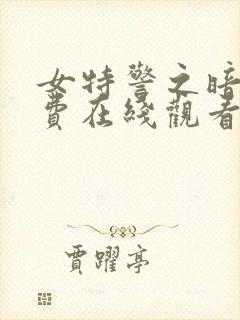 女特警之暗
費在綫觀看
賈躍亭